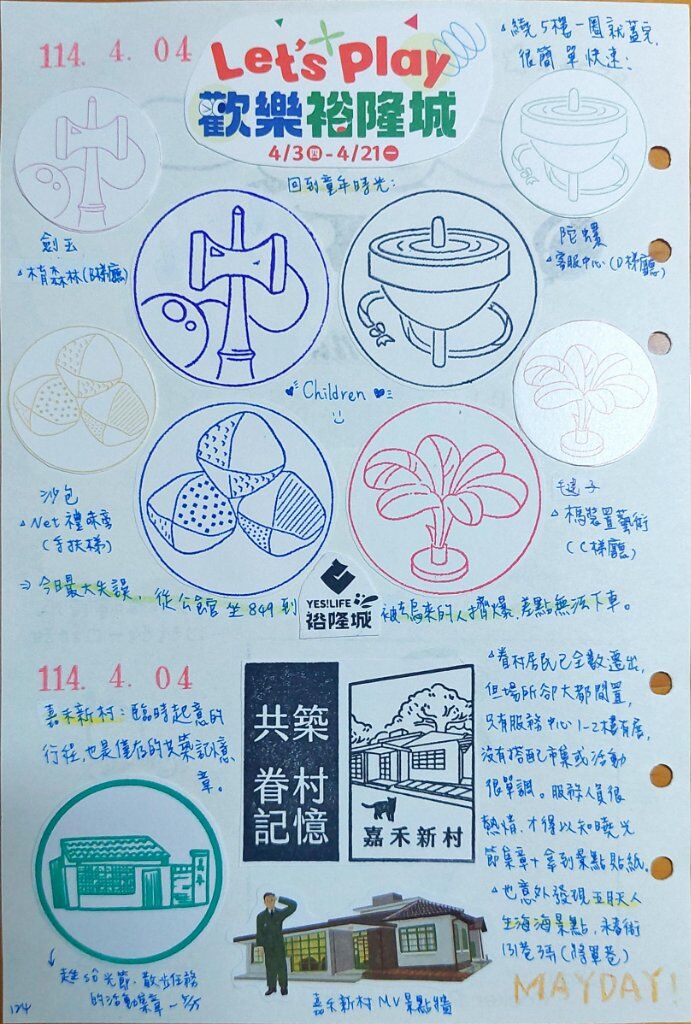 114. 4. 04
Let's Play
歡樂裕隆城
4/3四-4/21一
△繞5樓一圈就蓋完,
很簡單快速:
回到童年時光:
劍玉
△楮森林(B梯廳)
陀螺
△客服中心(D梯廳)
Children
沙包
△Net禮味旁
(手扶梯)
毽子
裝置藝術
(C梯廳)
⇒今日最大失誤, 從公館坐849到
被烏來的人擠爆, 差點無法下車。
YES!LIFE
裕隆城
114. 4. 04
嘉禾新村:臨時起意的
行程,也是僅存的共築記憶
章。
共築
眷村
記憶
嘉禾新村
△眷村居民已全數遷出,
但場所卻大都閒置,
只有服務中心1-2樓有展,
沒有搭配市集或活動
很單調。服務人員很
熱情,才得以知曉光
節集章+拿到景點貼紙。
△也意外發現五月天人
生海海景點,永春街
131巷弄(將軍巷)
光節,散步任務
的活動集章
嘉禾新村MV景點牆
MAYDAY!
124